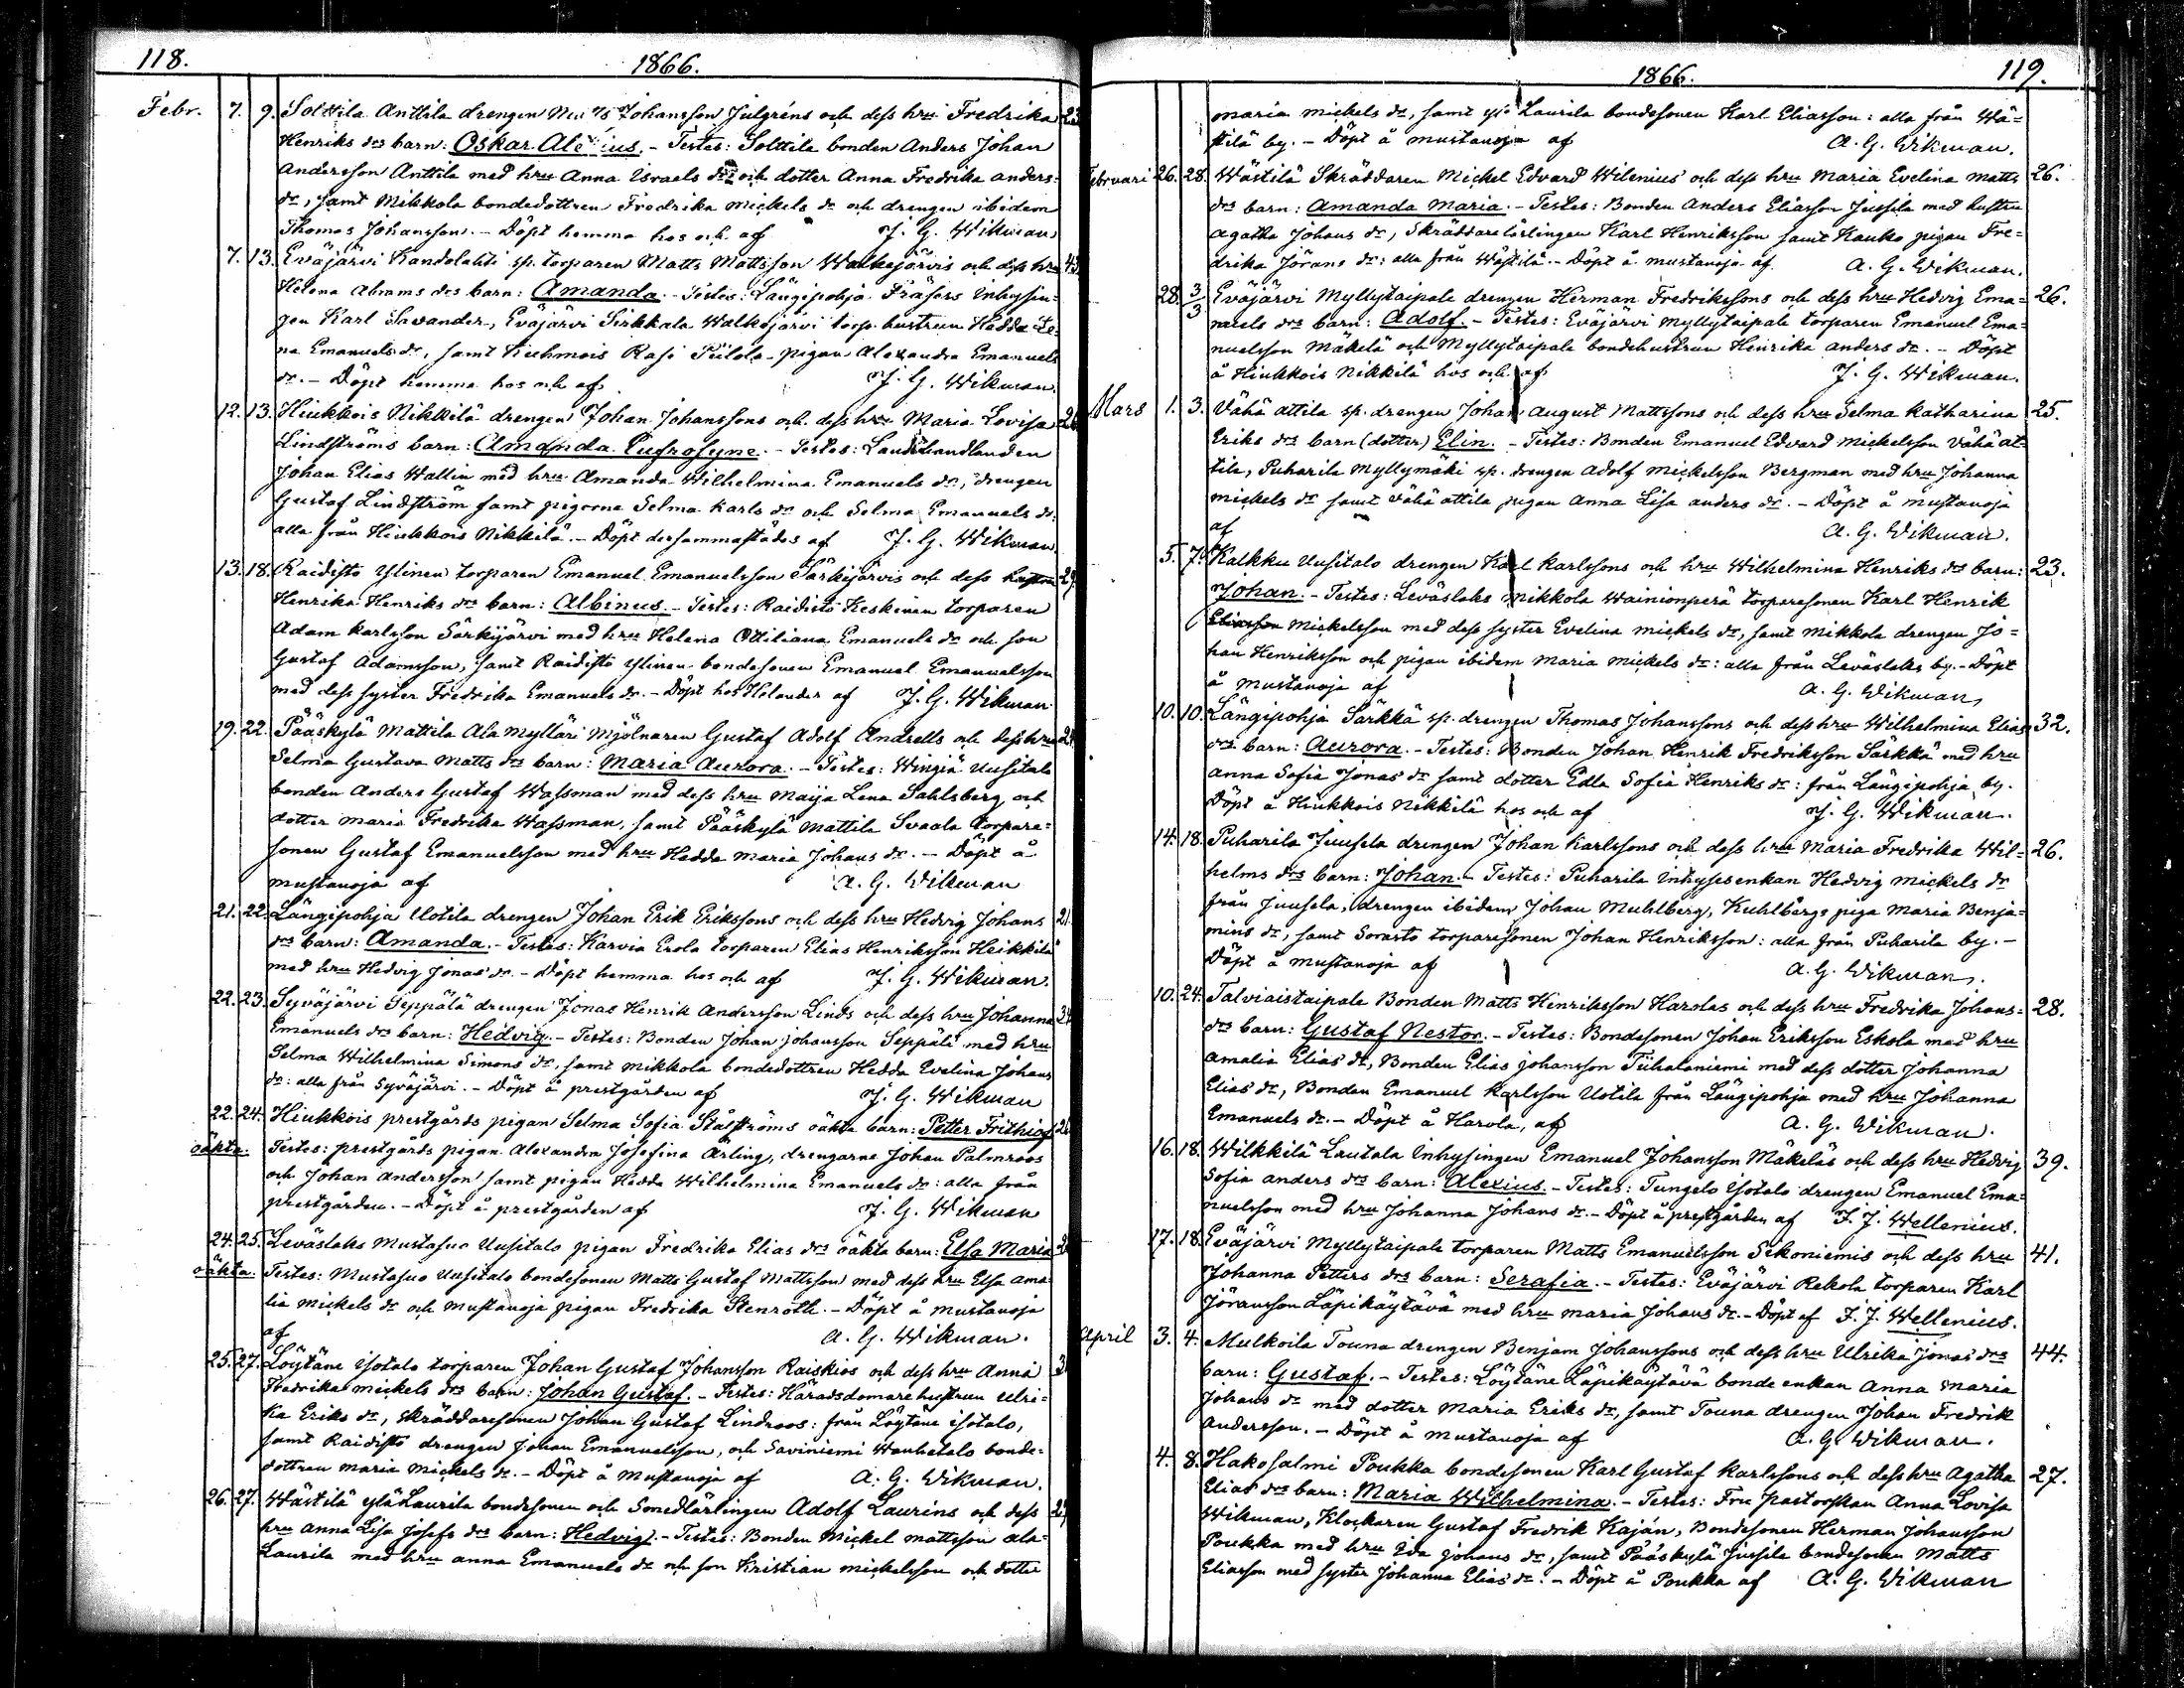 118.
1866.
Febr. 7. 9. Solttila Anttila drengen Johansson Julgréns och dess hru Fredrika 23
Henriks drs barn: Oskar Alexius. - Testes: Solttila bonden Anders Johan
Andersson Anttila med hru Anna Israels dr och dotter Anna Fredrika anders
dr, samt Mikkola bondedottren Fredrika mickels dr och drengen ibidem
Thomas Johansson. - Döpt hemma hos och af J. G. Wikman
7. 13. Eväjärvi Kandolahti sp. torparen Matts Mattsson Walkejärvis och dess hru 43
Helena Abrams drs barn: Amanda. - Testes: Längipohja Fräsors Inhysin=
gen Karl Savander, Eväjärvi Sirkkala Walkejärvi torp. hustrun Hedda Le=
na Emanuels dr, samt Kuhmois Rasi Piilola pigan Alexandra Emanuels
dr. - Döpt hemma hos och af J. G. Wikman.
12. 13. Hiukkois Nikkilä drengen Johan Johanssons och dess hru Maria Lovisa
Lindströms barn: Amanda Eufrosyne. - Testes: Landthandlanden
Johan Elias Wallin med hru Amanda Wilhelmina Emanuels dr, drengen
Gustaf Lindström samt pigorna Selma Karls dr och Selma Emanuels dr:
alla från Hiukkois Nikkilä. - Döpt dersammastädes af J. G. Wikman.
13. 18. Raidisto Ylinen torparen Emanuel Emanuelsson Särkijärvis och dess hustru 29
Henrika Henriks drs barn: Albinus. - Testes: Raidisto Keskinen torparen
Adam Karlsson Särkijärvi med hru Helena Ottiliana Emanuels dr och son
Gustaf Adamsson, samt Raidisto Ylinen bondesonen Emanuel Emanuelsson
med dess syster Fredrika Emanuels dr. - Döpt hos Helander af J. G. Wikman
19. 22. Pääskylä Mattila Ala mylläri Mjölnaren Gustaf Adolf Andrells och dess hru
Selma Gustava Matts drs barn: Maria Aurora. - Testes: Wingiä Uusitalo
bonden Anders Gustaf Wassman med dess hru Maija Lena Sahlsberg och
dotter maria Fredrika Wassman, samt Pääskylä Mattila Svaala torpare=
sonen Gustaf Emanuelsson med hru Hedda Maria Johans dr. - Döpt å
mustanoja af A. G. Wikman
21. 22. Längipohja Uotila drengen Johan Erik Erikssons och dess hru Hedvig Johans 21.
drs barn: Amanda. - Testes: Karvia Erola torparen Elias Henriksson Heikkilä
med hru Hedvig Jonas dr. - Döpt hemma hos och af J. G. Wikman.
22. 23. Syväjärvi Seppälä drengen Jonas Henrik Andersson Linds och dess hru Johanna 34
Emanuels drs barn: Hedvig. - Testes: Bonden Johan Johansson Seppälä med hru
Selma Wilhelmina Simons dr, samt mikkola bondedottren Hedda Evelina Johans
dr: alla från Syväjärvi. - Döpt å prestgården af J. G. Wikman
22. 24. Hiukkois prestgårds pigan Selma Sofia Stålströms oäkta barn: Petter Frithiof
oäkta. Testes: prestgårds pigan Alexandra Josefina Ärling, drengarne Johan Palmroos
och Johan Andersson samt pigan Hedda Wilhelmina Emanuels dr: alla från
prestgården. - Döpt å prestgården af J. G. Wikman
24. 25. Leväslaks Mustasuo Uusitalo pigan Fredrika Elias drs oäkta barn: Elsa Maria
oäkta. Testes: Mustasuo Uusitalo bondesonen Matts Gustaf Mattsson med dess hru Elsa Ama=
lia Mickels dr och mustanoja pigan Fredrika Stenroth. - Döpt å mustanoja
af A. G. Wikman.
25. 27. Löytäne isotalo torparen Johan Gustaf Johansson Raiskios och dess hru Anna 3
Fredrika mickels drs barn: Johan Gustaf. - Testes: Häradsdomare hustrun Ulri=
ka Eriks dr, skräddaresonen Johan Gustaf Lindroos: från Löytäne isotalo,
samt Raidisto drengen Johan Emanuelsson, och Saviniemi Wanhatalo bonde=
dottren maria Mickels dr. - Döpt å mustanoja af A. G. Wikman.
26. 27. Wästilä ylä Laurila bondesonen och Smedlärlingen Adolf Lauréns och dess
hru Anna Lisa Josefs drs barn: Hedvig. - Testes: Bonden Mickel mattsson ala=
Laurila med hru Anna Emanuels dr och son Kristian mickelsson och dotter
1866.
119.
maria mickels dr, samt ylä Laurila bondesonen Karl Eliasson: alla från Wä=
stilä by. - Döpt å mustanoja af A. G. Wikman.
Februari 26. 28. Wästilä Skräddaren Mickel Edvard Wilenius' och dess hru Maria Evelina matts 26.
drs barn: Amanda Maria. - Testes: Bonden Anders Eliasson Jussila med hustru
Agatha Johans dr, Skräddarelärlingen Karl Henriksson samt Kauko pigan Fre=
drika Jörans dr: alla från Wästilä. - Döpt å mustanoja af A. G. Wikman.
28. 3/3 Eväjärvi Myllytaipale drengen Herman Fredrikssons och dess hru Hedvig Ema= 26.
nuels drs barn: Adolf. - Testes: Eväjärvi Myllytaipale torparen Emanuel Ema=
nuelsson Mäkelä och Myllytaipale bondehustrun Henrika Anders dr. - Döpt
å Hiukkois Nikkilä hos och af J. G. Wikman.
Mars 1. 3. Vähä attila sp. drengen Johan August Mattssons och dess hru Selma Katharina 25.
Eriks drs barn (dotter) Elin. - Testes: Bonden Emanuel Edvard Mickelsson Vähä at=
tila, Puharila Myllymäki sp. drengen Adolf Mickelsson Bergman med hru Johanna
mickels dr samt Vähä attila pigan Anna Lisa anders dr. - Döpt å mustanoja
af A. G. Wikman.
5. 7. Kalkku Uusitalo drengen Karl Karlssons och hru Wilhelmina Henriks drs barn: 23.
Johan. - Testes: Leväslaks Mikkola Wainionperä torparesonen Karl Henrik
Eliasson Mickelsson med dess syster Evelina mickels dr, samt Mikkola drengen Jo=
han Henriksson och pigan ibidem Maria mickels dr: alla från Leväslaks by. - Döpt
å mustanoja af A. G. Wikman,
10. 10. Längipohja Särkkä sp. drengen Thomas Johanssons och dess hru Wilhelmina Elias 32.
drs barn: Aurora. - Testes: Bonden Johan Henrik Fredriksson Särkkä med hru
Anna Sofia Jonas dr samt dotter Edla Sofia Henriks dr: från Längipohja by.
Döpt å Hiukkois Nikkilä hos och af J. G. Wikman.
14. 18. Puharila Juusela drengen Johan Karlssons och dess hru Maria Fredrika Wil= 26.
helms drs barn: Johan. - Testes: Puharila Inhysesenkan Hedvig Mickels dr
från Juusela, drengen ibidem Johan Muhlberg, Kuhlbergs piga Maria Benja=
mins dr, samt Sorasto torparesonen Johan Henriksson: alla från Puharila by. -
Döpt å mustanoja af A. G. Wikman.
10. 24. Talviaistaipale Bonden Matts Henriksson Harolas och dess hru Fredrika Johans= 28.
drs barn: Gustaf Nestor. - Testes: Bondesonen Johan Eriksson Eskola med hru
Amalia Elias dr, Bonden Elias Johansson Tiihalaniemi med dess dotter Johanna
Elias dr, Bonden Emanuel Karlsson Uotila från Längipohja med hru Johanna
Emanuels dr. - Döpt å Harola, af A. G. Wikman.
16. 18. Wilkkilä Lautala Inhysingen Emanuel Johansson Mäkeläs och dess hru Hedvig 39.
Sofia anders drs barn: Alexius. - Testes: Tungelo Ysotalo drengen Emanuel Ema=
nuelsson med hru Johanna Johans dr. - Döpt å prestgården af F. J. Wellenius.
17. 18. Eväjärvi Myllytaipale torparen Matts Emanuelsson Sekoniemis och dess hru 41.
Johanna Petters drs barn: Serafia. - Testes: Eväjärvi Rekola torparen Karl
Jöransson Läpikäytävä med hru maria Johans dr. - Döpt af F. J. Wellenius.
April 3. 4. Mulkoila Touna drengen Benjam Johanssons och dess hru Ulrika Jonas drs 44.
barn: Gustaf. - Testes: Löytäne Läpikäytävä bonde enkan Anna Maria
Johans dr med dotter Maria Eriks dr, samt Touna drengen Johan Fredrik
Andersson. - Döpt å Mustanoja af A. G. Wikman.
4. 8. Hakosalmi Poukka bondesonen Karl Gustaf Karlssons och dess hru Agatha 27.
Elias drs barn: Maria Wilhelmina. - Testes: Fru pastorskan Anna Lovisa
Wikman, Klockaren Gustaf Fredrik Kaján, Bondesonen Herman Johansson
Poukka med hru Eva Johans dr, samt Pääskylä Jussila bondesonen Matts
Eliasson med syster Johanna Elias dr. - Döpt å Poukka af A. G. Wikman